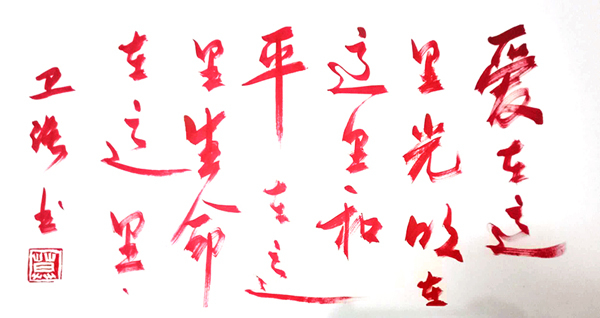 爱在这
里光明在
这里和
平在这
里生命
在这里
卫书